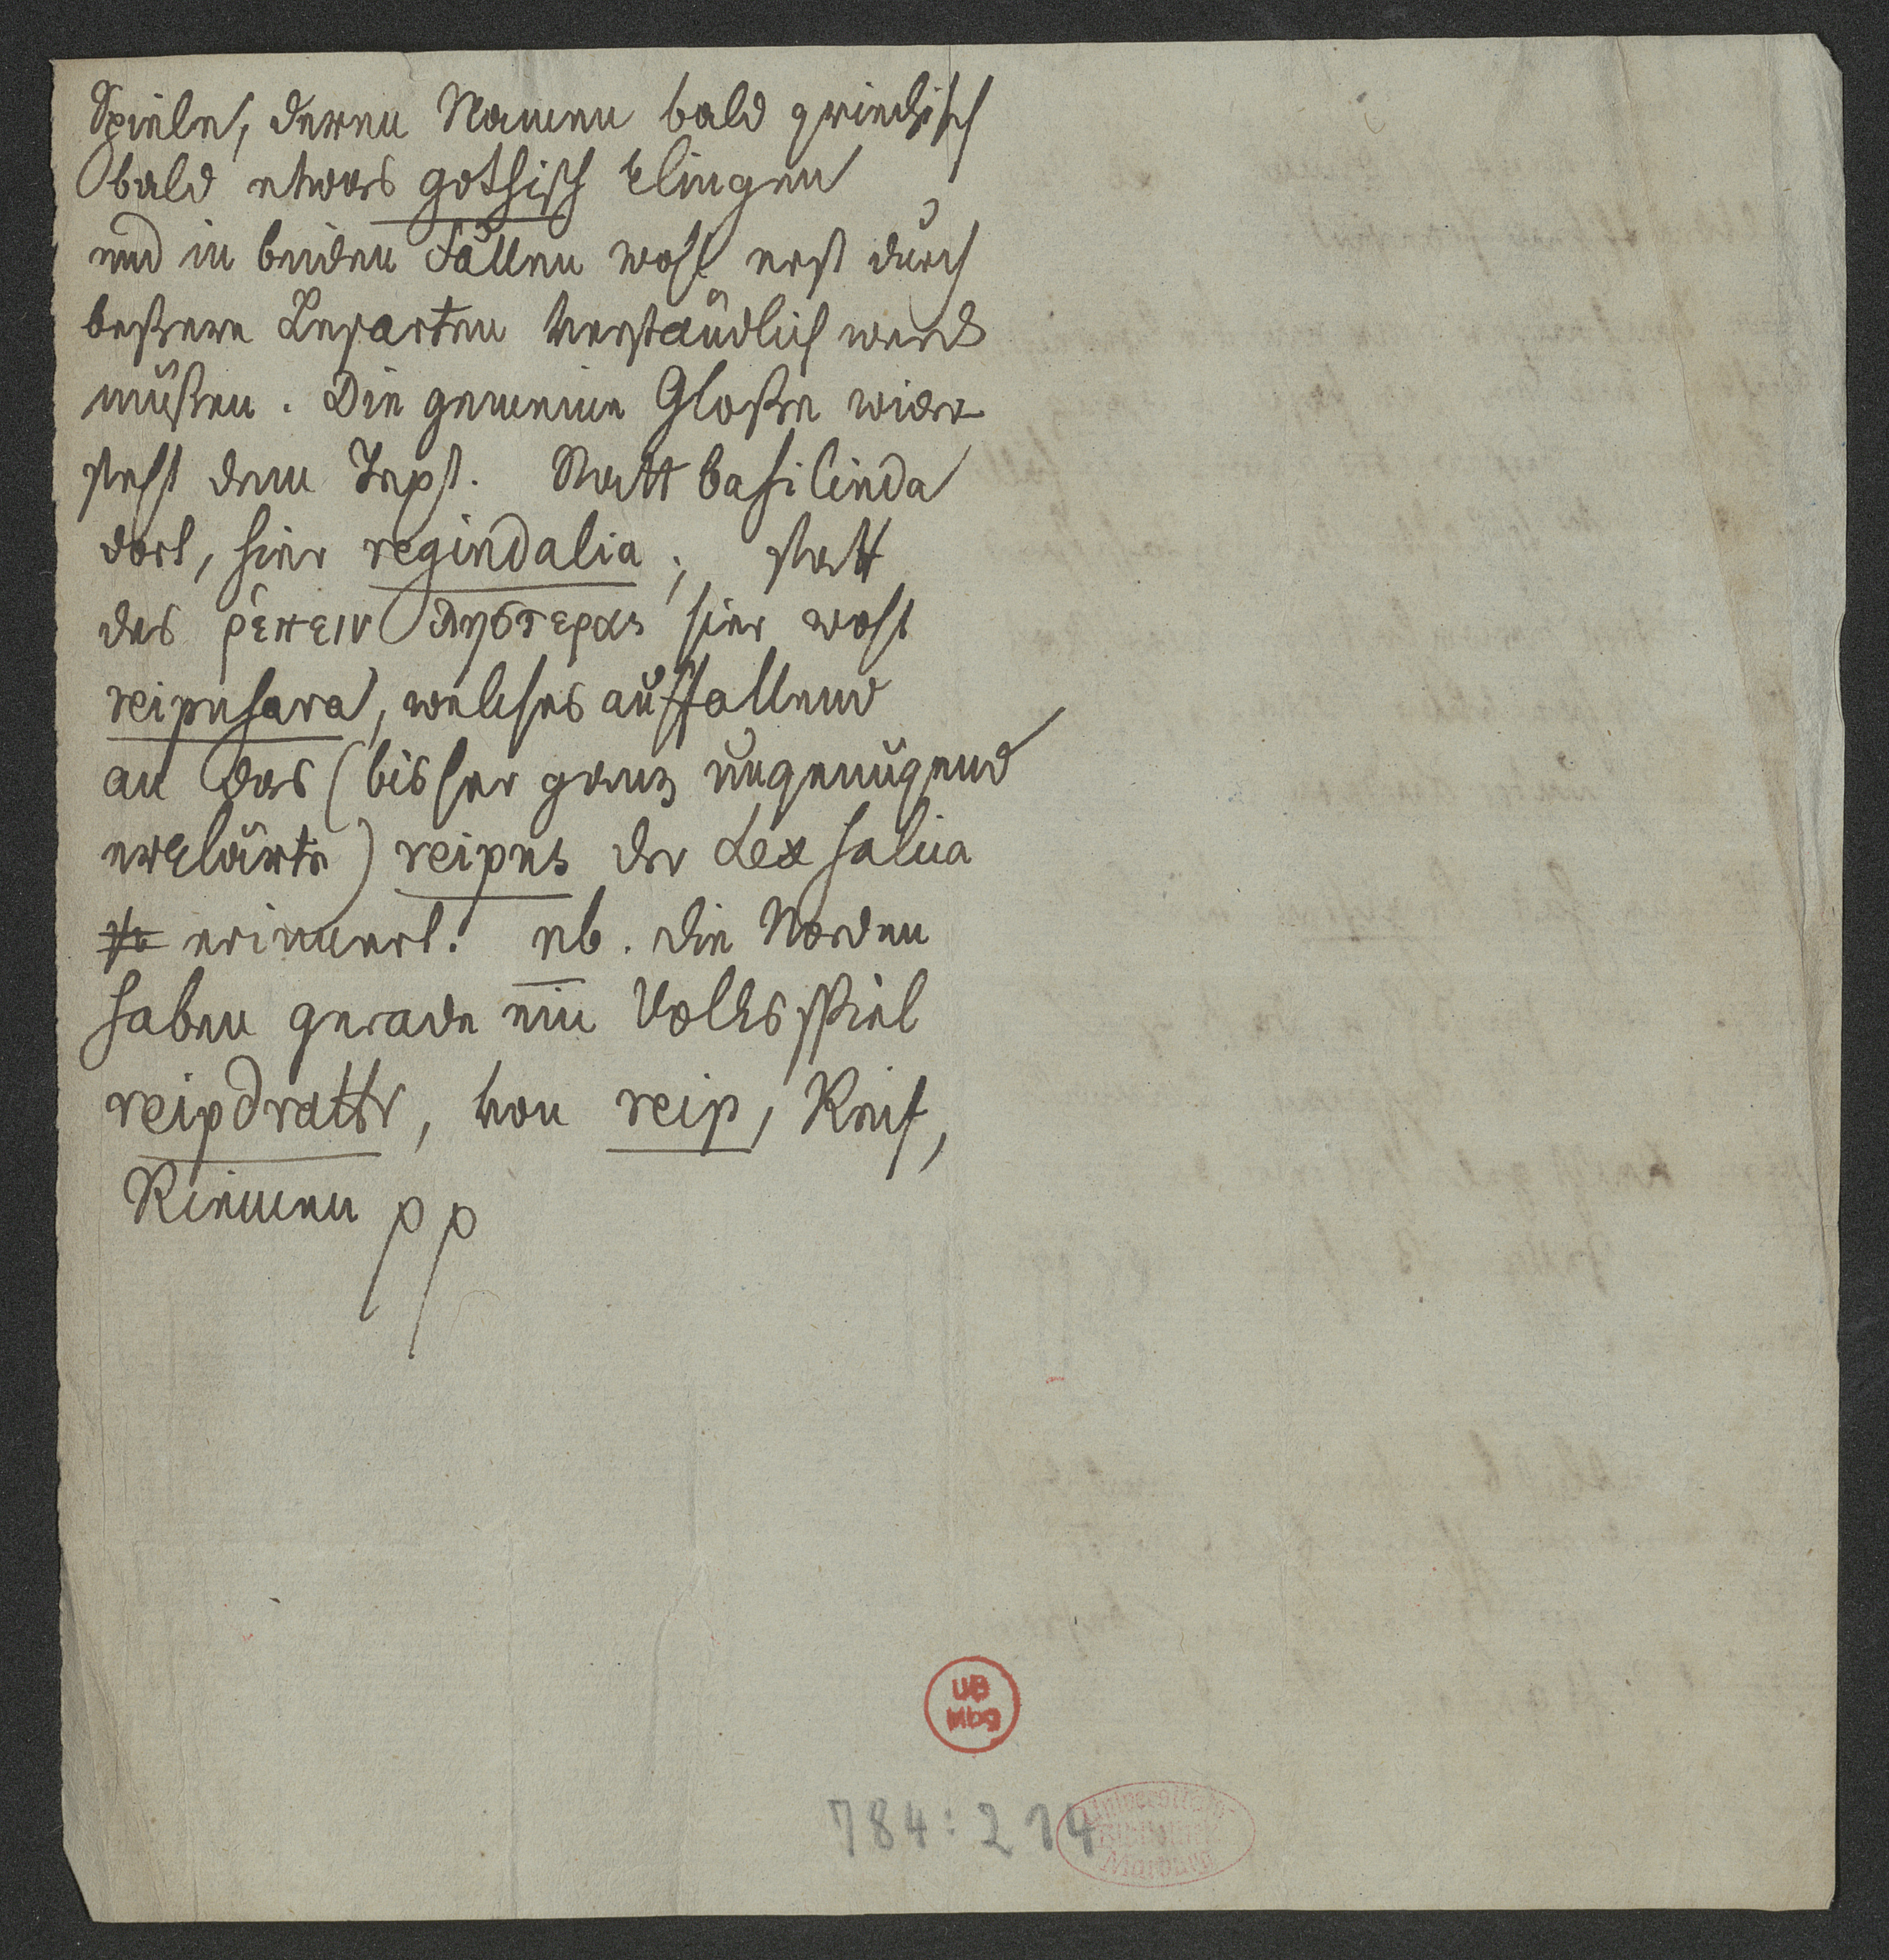 Spiele, deren Namen bald griechisch
bald etwas gothisch klingen
und in beiden Fällen wohl erst durch
beßere Lesarten verständlich werd
müßen. Die gemeine Gloße wider
steht dem Text. Statt basilinda
dort, hier regindalia; statt
des ρεπειν hier wohl
reipusara, welches auffallend
an das (bisher ganz ungenügend
erklärte) reipus der Lex salica
erinnert. nb. die Norden
haben gerade ein Volksspiel
reipdrattr, von reip, Reif,
Riemen pp
UB
Mbg
784:214
Universitäts-
Bibliothek
Marburg